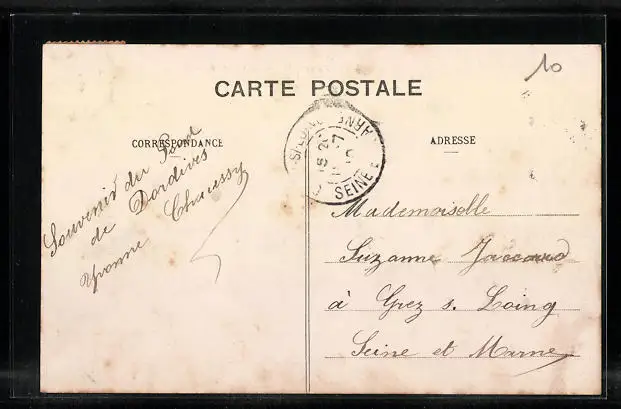 10
CARTE POSTALE
CORRESPONDANCE
ADRESSE
Souvenir du
de Dordives
Yvonne Chaussy
SEINE
Mademoiselle
Suzanne Jaccard
à Grez s. Loing
Seine et Marne